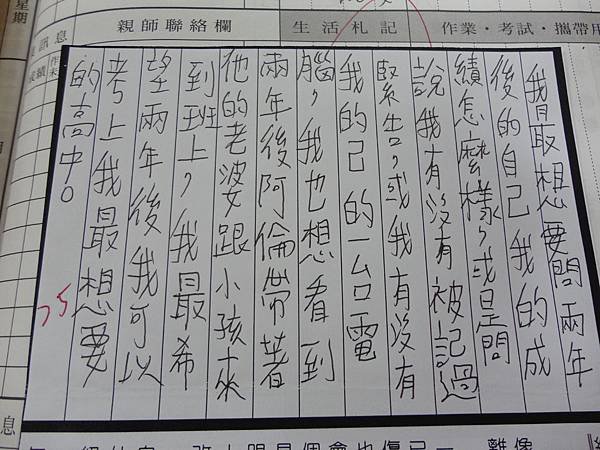 星期
訊息
親師聯絡欄
生活札記
作業·考試·攜帶用
我最想要問兩年
後的自己我的成
績怎麼樣,或是問
說我有沒有被記過
警告,或我有沒有
我的己的一台電
腦,我也想看到
兩年後阿倫帶著
他的老婆跟小孩來
到班上,我最希
望兩年後我可以
考上我最想要
的高中。
75
息